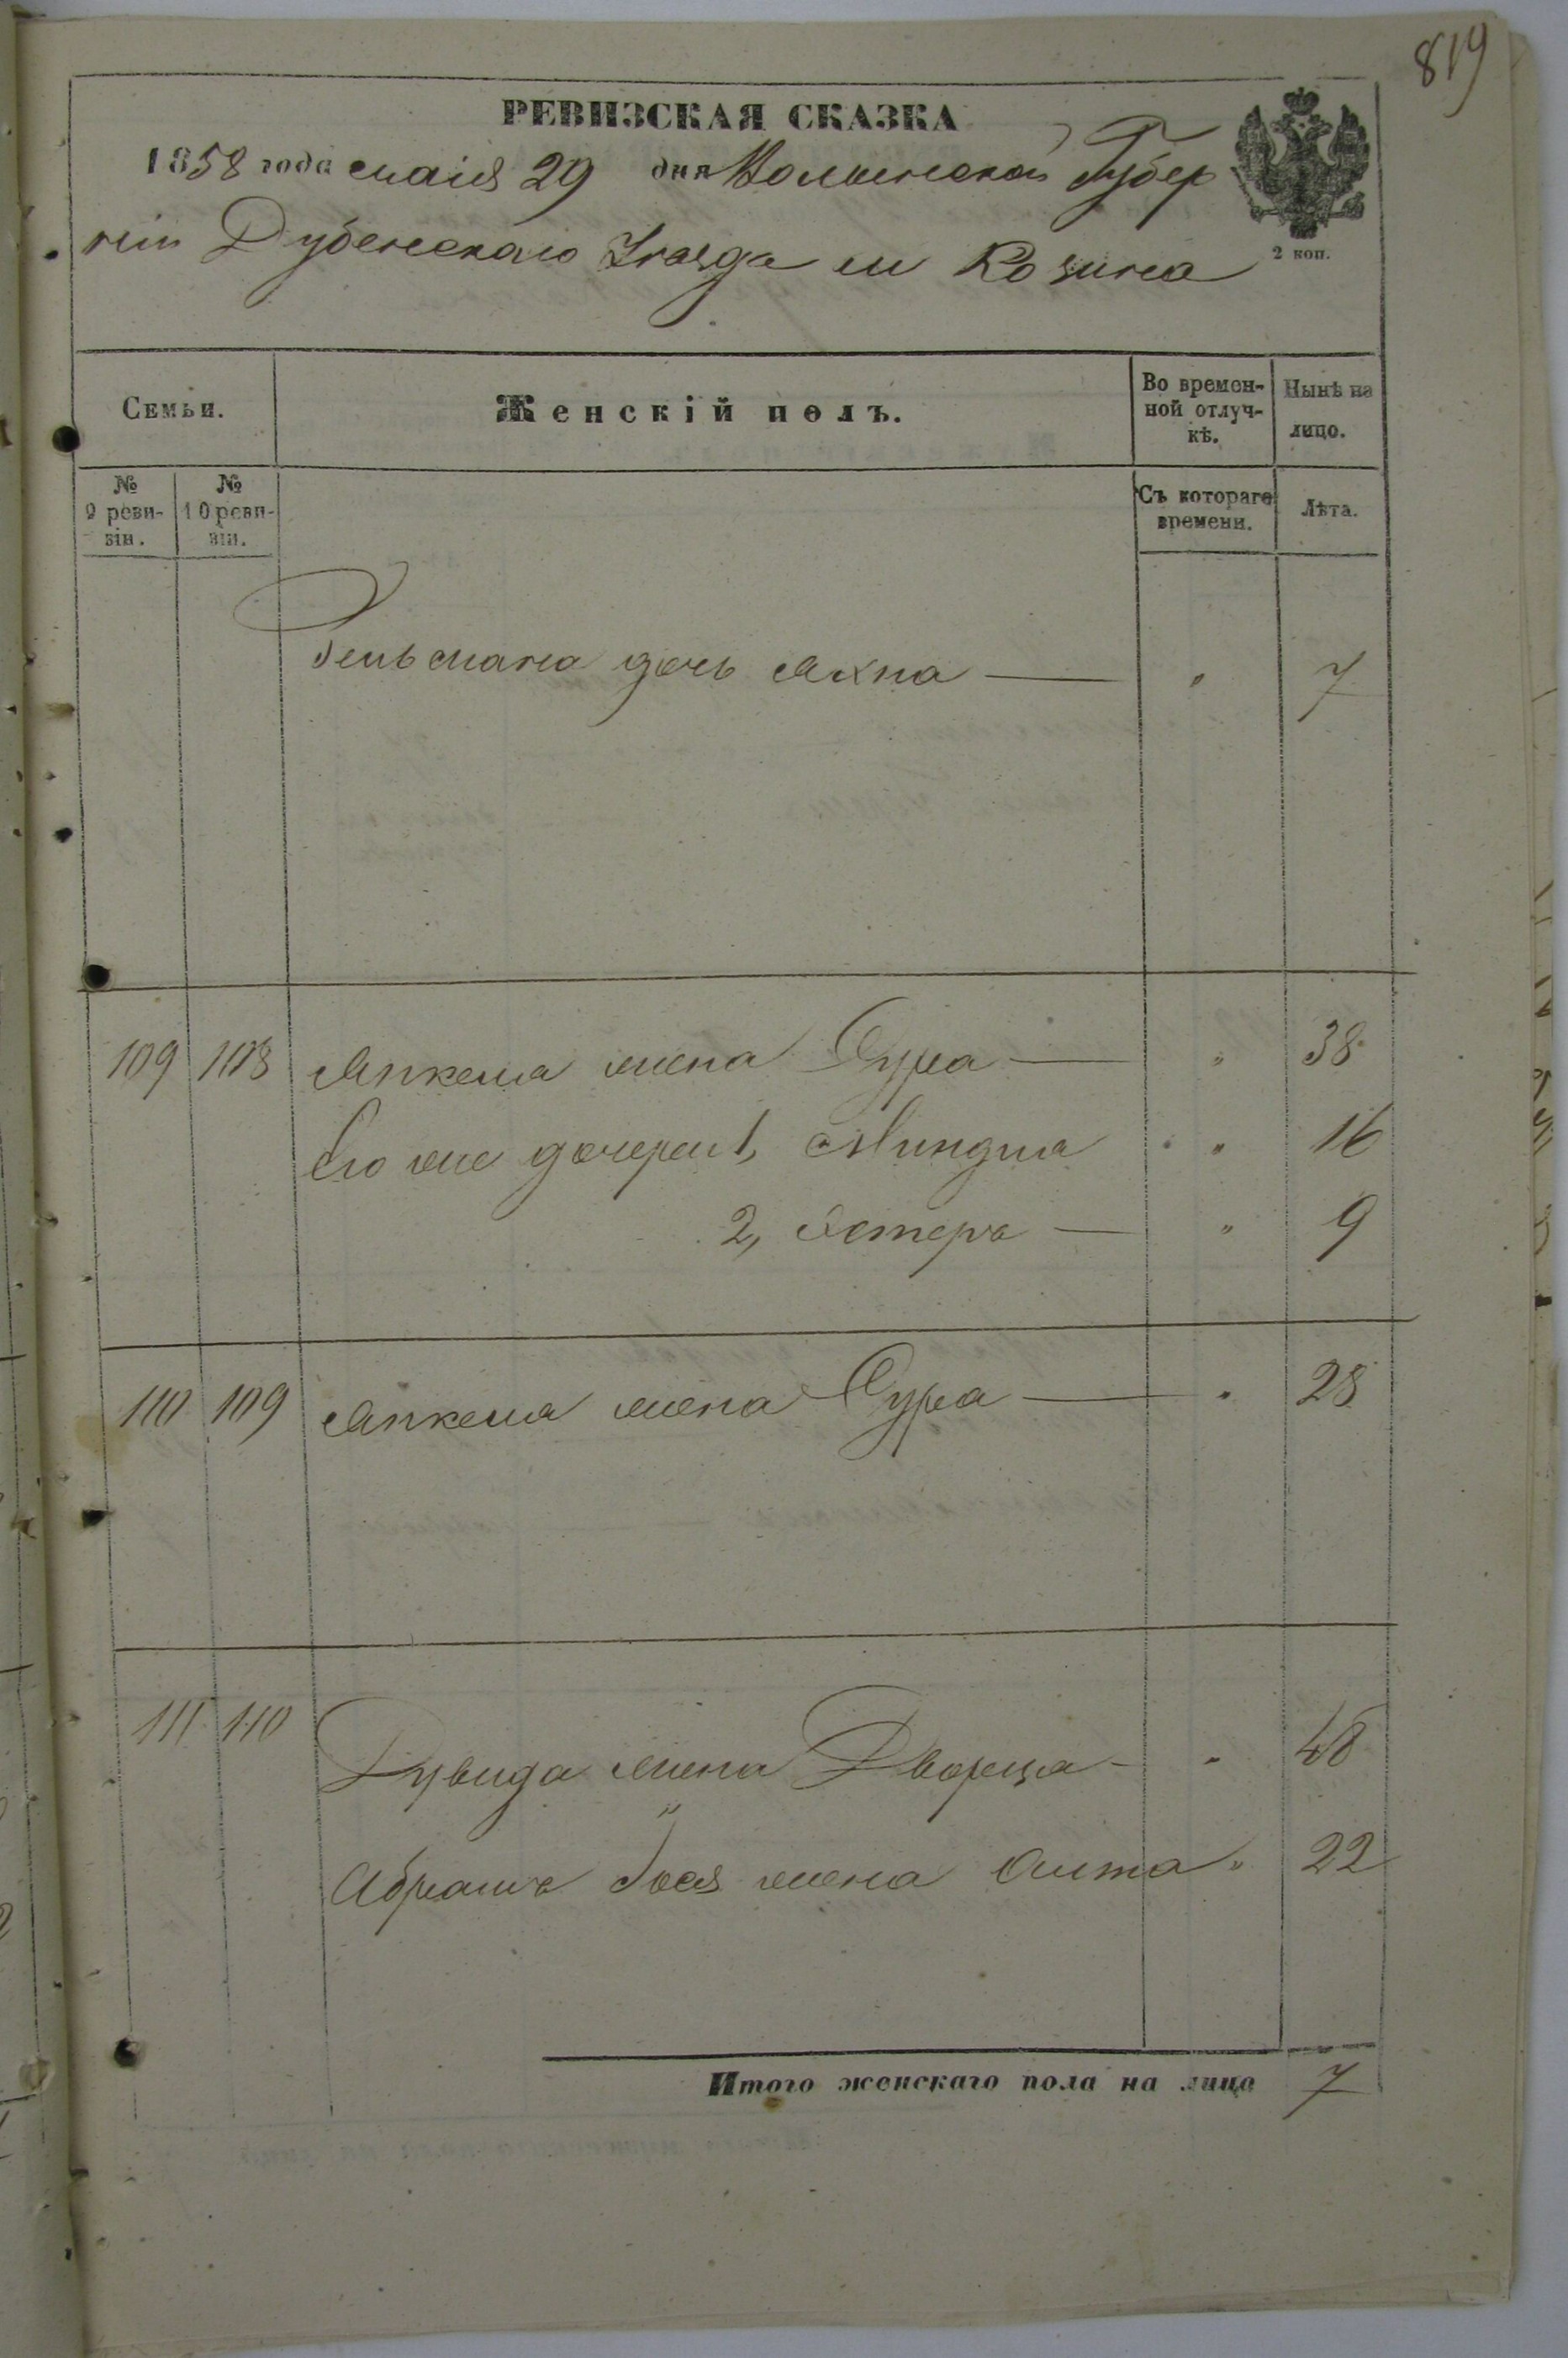 819
РЕВИЗСКАЯ СКАЗКА
1858 года маія 29 дня Волынской Губер
ніи Дубенскаго Уезда м Козина
2 коп.
Семьи. Женскій полъ. Во времен-ной отлуч-кѣ. Нынѣ на лицо.
№ 9 реви-зіи. № 10 реви-зіи. Съ котораго времени. Лѣта.
Гельмана дочь " 7
109 108 Янкеля жена Сура — " 38
Его же дочери 1, Миндля " 16
2, Естеръ — " 9
110 109 Янкеля жена Сура — " 28
111 110 Дувида жена Двойра - " 48
Абрамъ Іося жена " 22
Итого женскаго пола на лицо 7